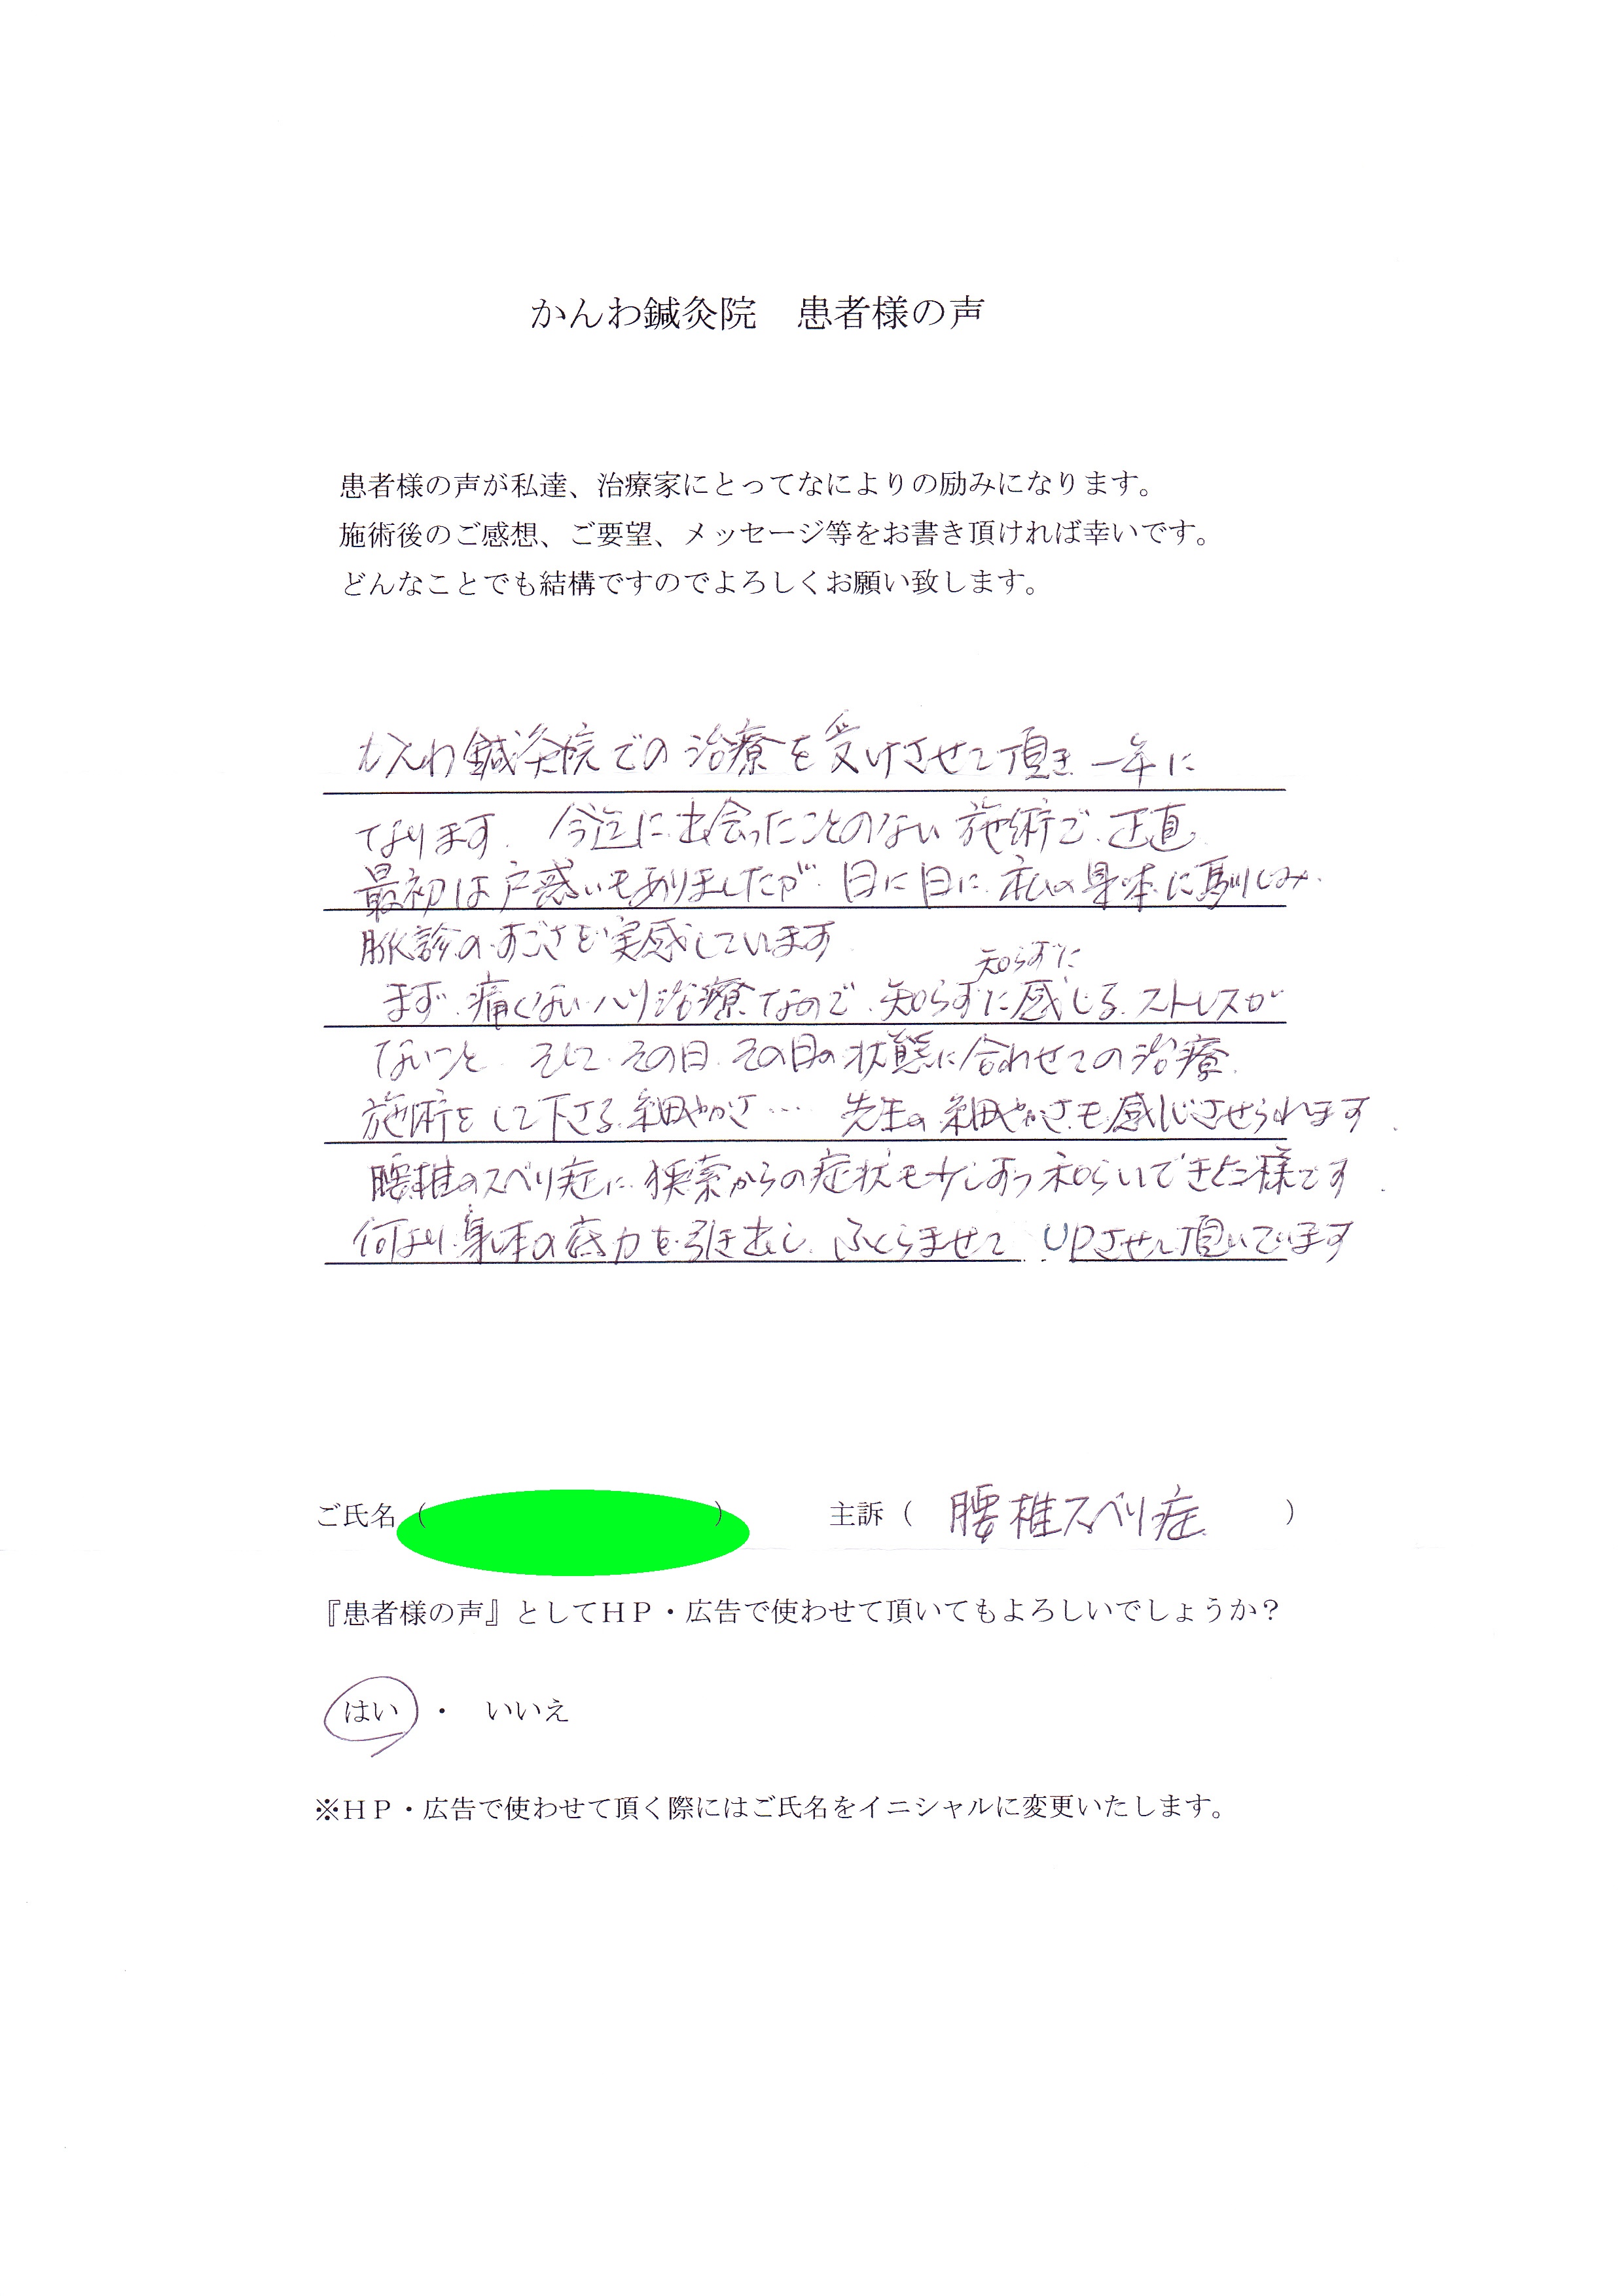 かんわ鍼灸院　患者様の声
患者様の声が私達、治療家にとってなによりの励みになります。
施術後のご感想、ご要望、メッセージ等をお書き頂ければ幸いです。
どんなことでも結構ですのでよろしくお願い致します。
かんわ鍼灸院での治療を受けさせて頂き一年に
なります。今迄に出会ったことのない施術で、正直
最初は戸惑いもありましたが、日に日に私の身体に馴じみ、
脈診のすごさを実感しています
知らずに
まず、痛くないハリ治療なので、知らずに感じるストレスが
ないこと そして、その日、その日の状態に合わせての治療、
施術をして下さる細やかさ… 先生の細やかさも感じさせられます。
腰椎のスベリ症に狭索からの症状も少しずつ和らいできた様です。
何より身体の底力を引き出し、ふくらませて UPさせて頂いています
ご氏名（　　　）　主訴（ 腰椎スベリ症 ）
『患者様の声』としてＨＰ・広告で使わせて頂いてもよろしいでしょうか？
はい ・ いいえ
※ＨＰ・広告で使わせて頂く際にはご氏名をイニシャルに変更いたします。